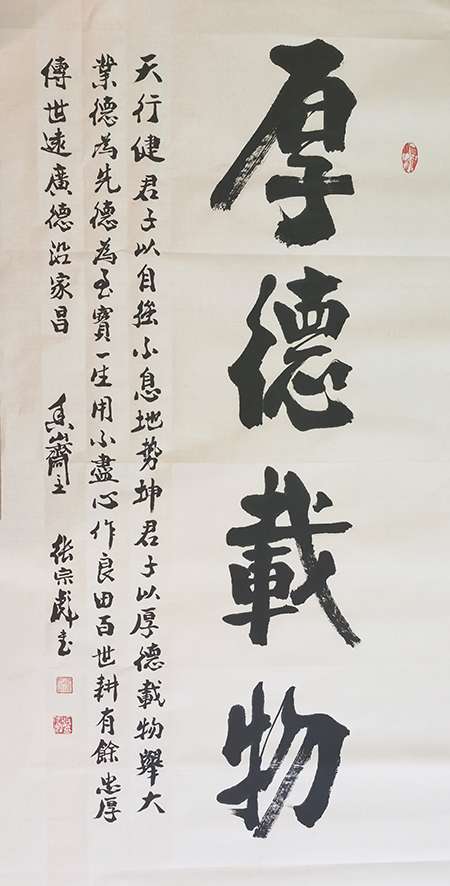 厚德載物
天行健君子以自强不息地势坤君子以厚德載物舉大
業德為先德為至寳一生用不盡心作良田百世耕有餘忠厚
傳世遠廣德沿家昌
齋主 张宗彪书